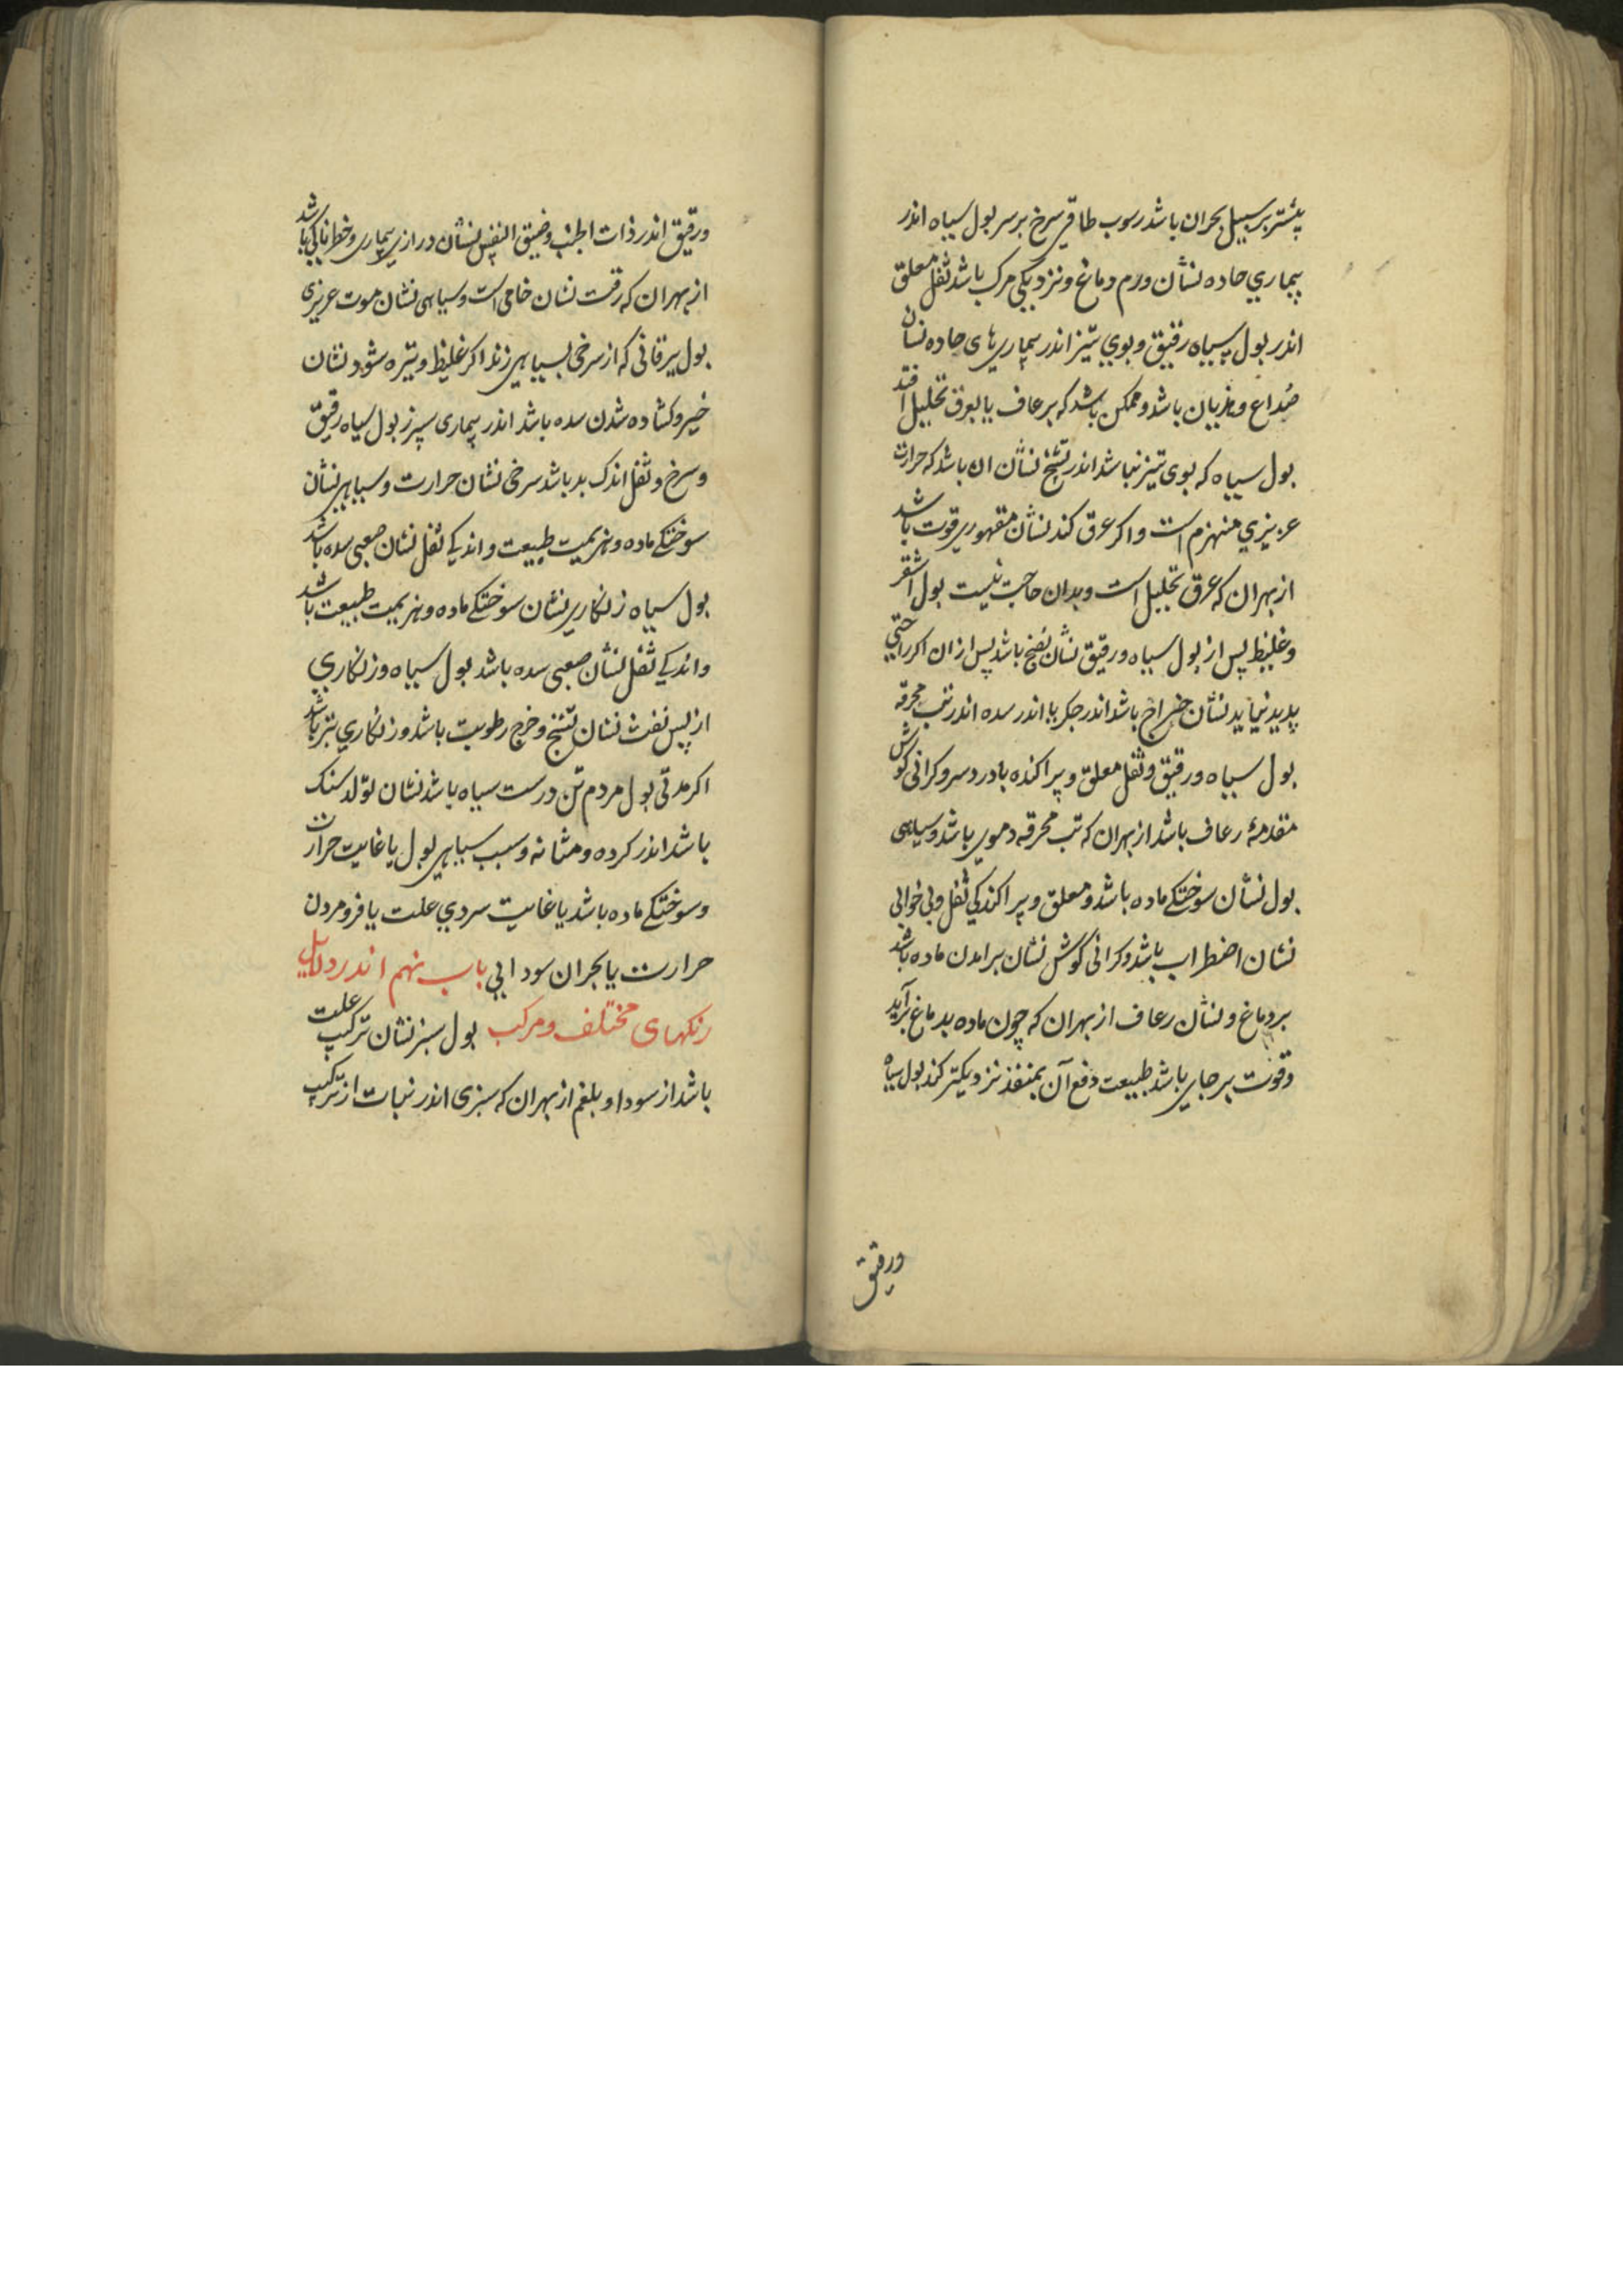 بیشتر بر سبیل بحران باشد رسوب طاقی سرخ بر سر بول سیاه اندر
بیماری حاده نشان ورم دماغ و نزدیکی مرک باشد ثفل معلق
اندر بول سیاه رقیق و بوی تیز اندر بیماریهای حاده نشان
صداع و هذیان باشد و ممکن باشد که برعاف یا بعرق تحلیل افتد
بول سیاه که بوی تیز نباشد اندر تشنج نشان ان باشد که حرارت
عزیزی منهزم است و اکر عرق کند نشان مقهوری قوت باشد
از بهر ان که عرق تحلیل است و بدان حاجت نیست بول اشقر
و غلیظ پس از بول سیاه و رقیق نشان نضج باشد پس از ان اکر راحتی
پدید نیاید نشان خراج باشد اندر جکر یا اندر سده اندر تب محرقه
بول سیاه و رقیق و ثفل معلق و پراکنده با درد سر و کرانی کوش
مقدمۀ رعاف باشد از بهر ان که تب محرقه دموی باشد و سیاهی
بول نشان سوختکے ماده باشد و معلق و پراکندکی ثفل و بی خوابی
نشان اضطراب باشد و کرانی کوش نشان برامدن ماده باشد
بر دماغ و نشان رعاف از بهر ان که چون ماده بدماغ برآید
و قوت بر جای باشد طبیعت دفع آن بمنفذ نزدیکتر کند بول سیاه
ورقیق
ورقیق اندر ذات الجنب و ضیق النفس نشان درازی بیماری و خطرناکی باشد
از بهر ان که رقت نشان خامی است و سیاهی نشان موت عزیزی
بول یرقانی که از سرخی بسیاهی زند اکر غلیظ و تیره شود نشان
خیر و کشاده شدن سده باشد اندر بیماری سپرز بول سیاه رقیق
و سرخ و ثفل اندک بد باشد سرخی نشان حرارت و سیاهی نشان
سوختکے ماده و هزیمیت طبیعت و اندکے ثفل نشان صعبی سده باشد
بول سیاه زنکاری نشان سوختکے ماده و هزیمیت طبیعت باشد
و اندکے ثفل نشان صعبی سده باشد بول سیاه و زنکاری
از پس نفث نشان تشنج و خرج رطوبت باشد و زنکاری بتر باشد
اکر مدتی بول مردم تن درست سیاه باشد نشان تولد سنک
باشد اندر کرده و مثانه و سبب سیاهی بول یا غایت حرارت
و سوختکے ماده باشد یا غایت سردی علت یا فرو مردن
حرارت یا بحران سودایی باب نهم اندر دلایل
رنکهای مختلف و مرکب بول سبز نشان ترکیب علت
باشد از سودا و بلغم از بهر ان که سبزی اندر نبات از ترکیب